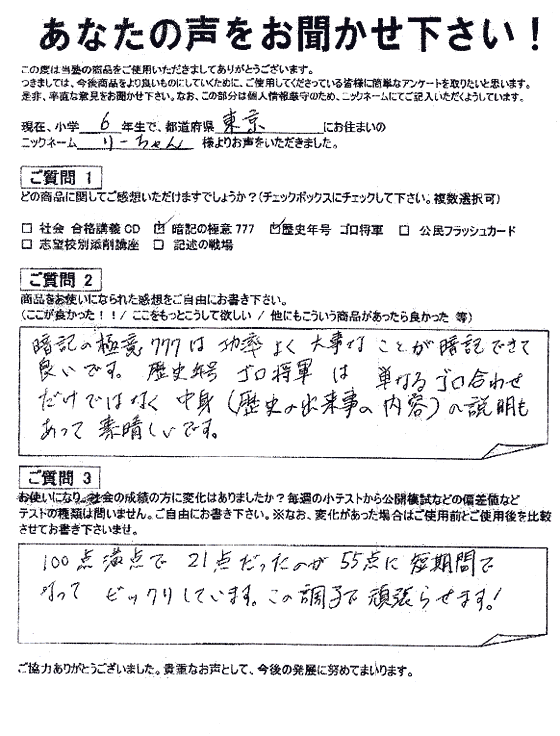 あなたの声をお聞かせ下さい!
この度は当塾の商品をご使用いただきましてありがとうございます。
つきましては、今後商品をより良いものにしていくために、ご使用してくださっている皆様に簡単なアンケートを取りたいと思います。
是非、率直な意見をお聞かせ下さい。なお、この部分は個人情報厳守のため、ニックネームにてご記入いただくようしています。
現在、小学 6 年生で、都道府県 東京 にお住まいの
ニックネーム りーちゃん 様よりお声をいただきました。
ご質問 1
どの商品に関してご感想いただけますでしょうか?(チェックボックスにチェックして下さい。複数選択可)
□ 社会 合格講義CD ☑ 暗記の極意777 ☑歴史年号 ゴロ将軍 □ 公民フラッシュカード
□ 志望校別添削講座 □ 記述の戦場
ご質問 2
商品をお使いになられた感想をご自由にお書き下さい。
(ここが良かった!!/ここをもっとこうして欲しい/他にもこういう商品があったら良かった 等)
暗記の極意777は効率よく大事なことが暗記できて
良いです。歴史年号 ゴロ将軍 は 単なるゴロ合わせ
だけではなく 中身(歴史の出来事の内容)の説明も
あって 素晴しいです。
ご質問 3
お使いになり、社会の成績の方に変化はありましたか?毎週の小テストから公開模試などの偏差値など
テストの種類は問いません。ご自由にお書き下さい。※なお、変化があった場合はご使用前とご使用後を比較
させてお書き下さいませ。
100点満点で 21点だったのが 55点に短期間で
なって ビックリしています。この調子で頑張らせます!
ご協力ありがとうございました。貴重なお声として、今後の発展に努めてまいります。